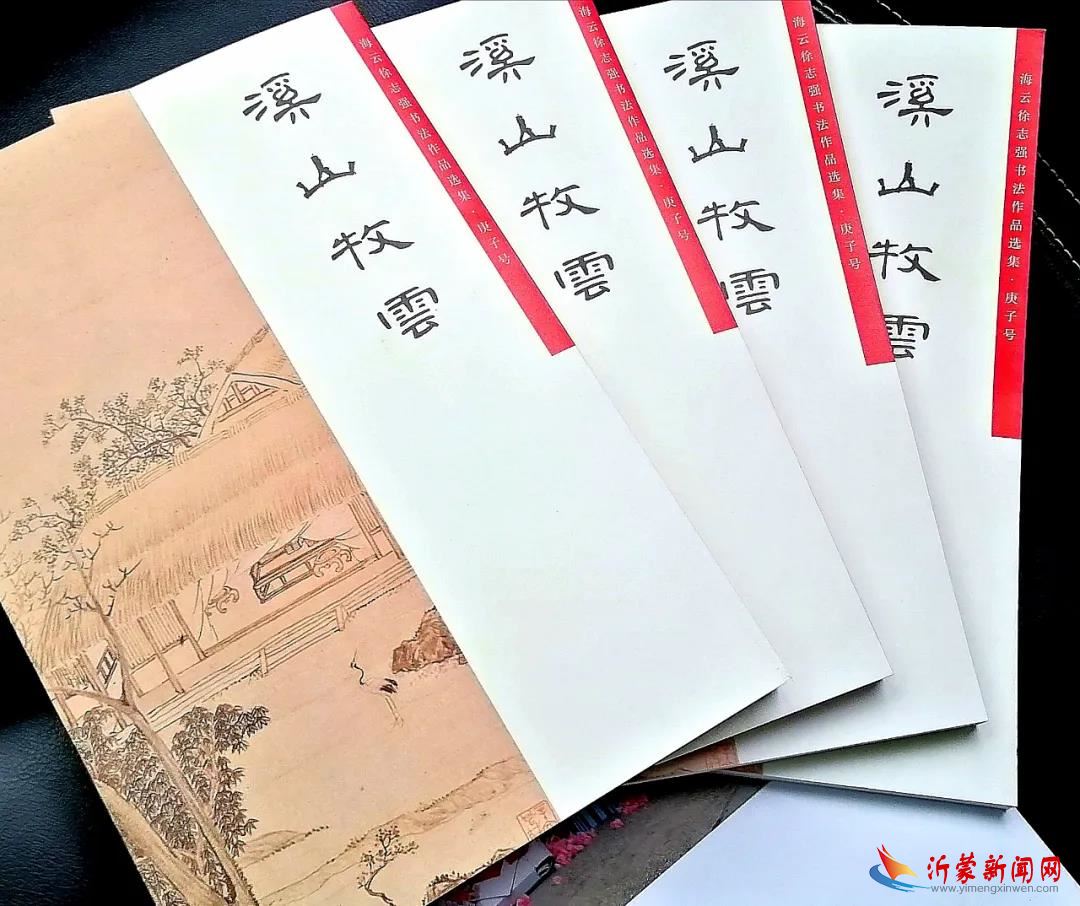 溪山牧雲
海云徐志强书法作品选集·庚子号
溪山牧雲
海云徐志强书法作品选集·庚子号
溪山牧雲
海云徐志强书法作品选集·庚子号
溪山牧雲
海云徐志强书法作品选集·庚子号
沂蒙新闻网
www.yimengxinwen.com